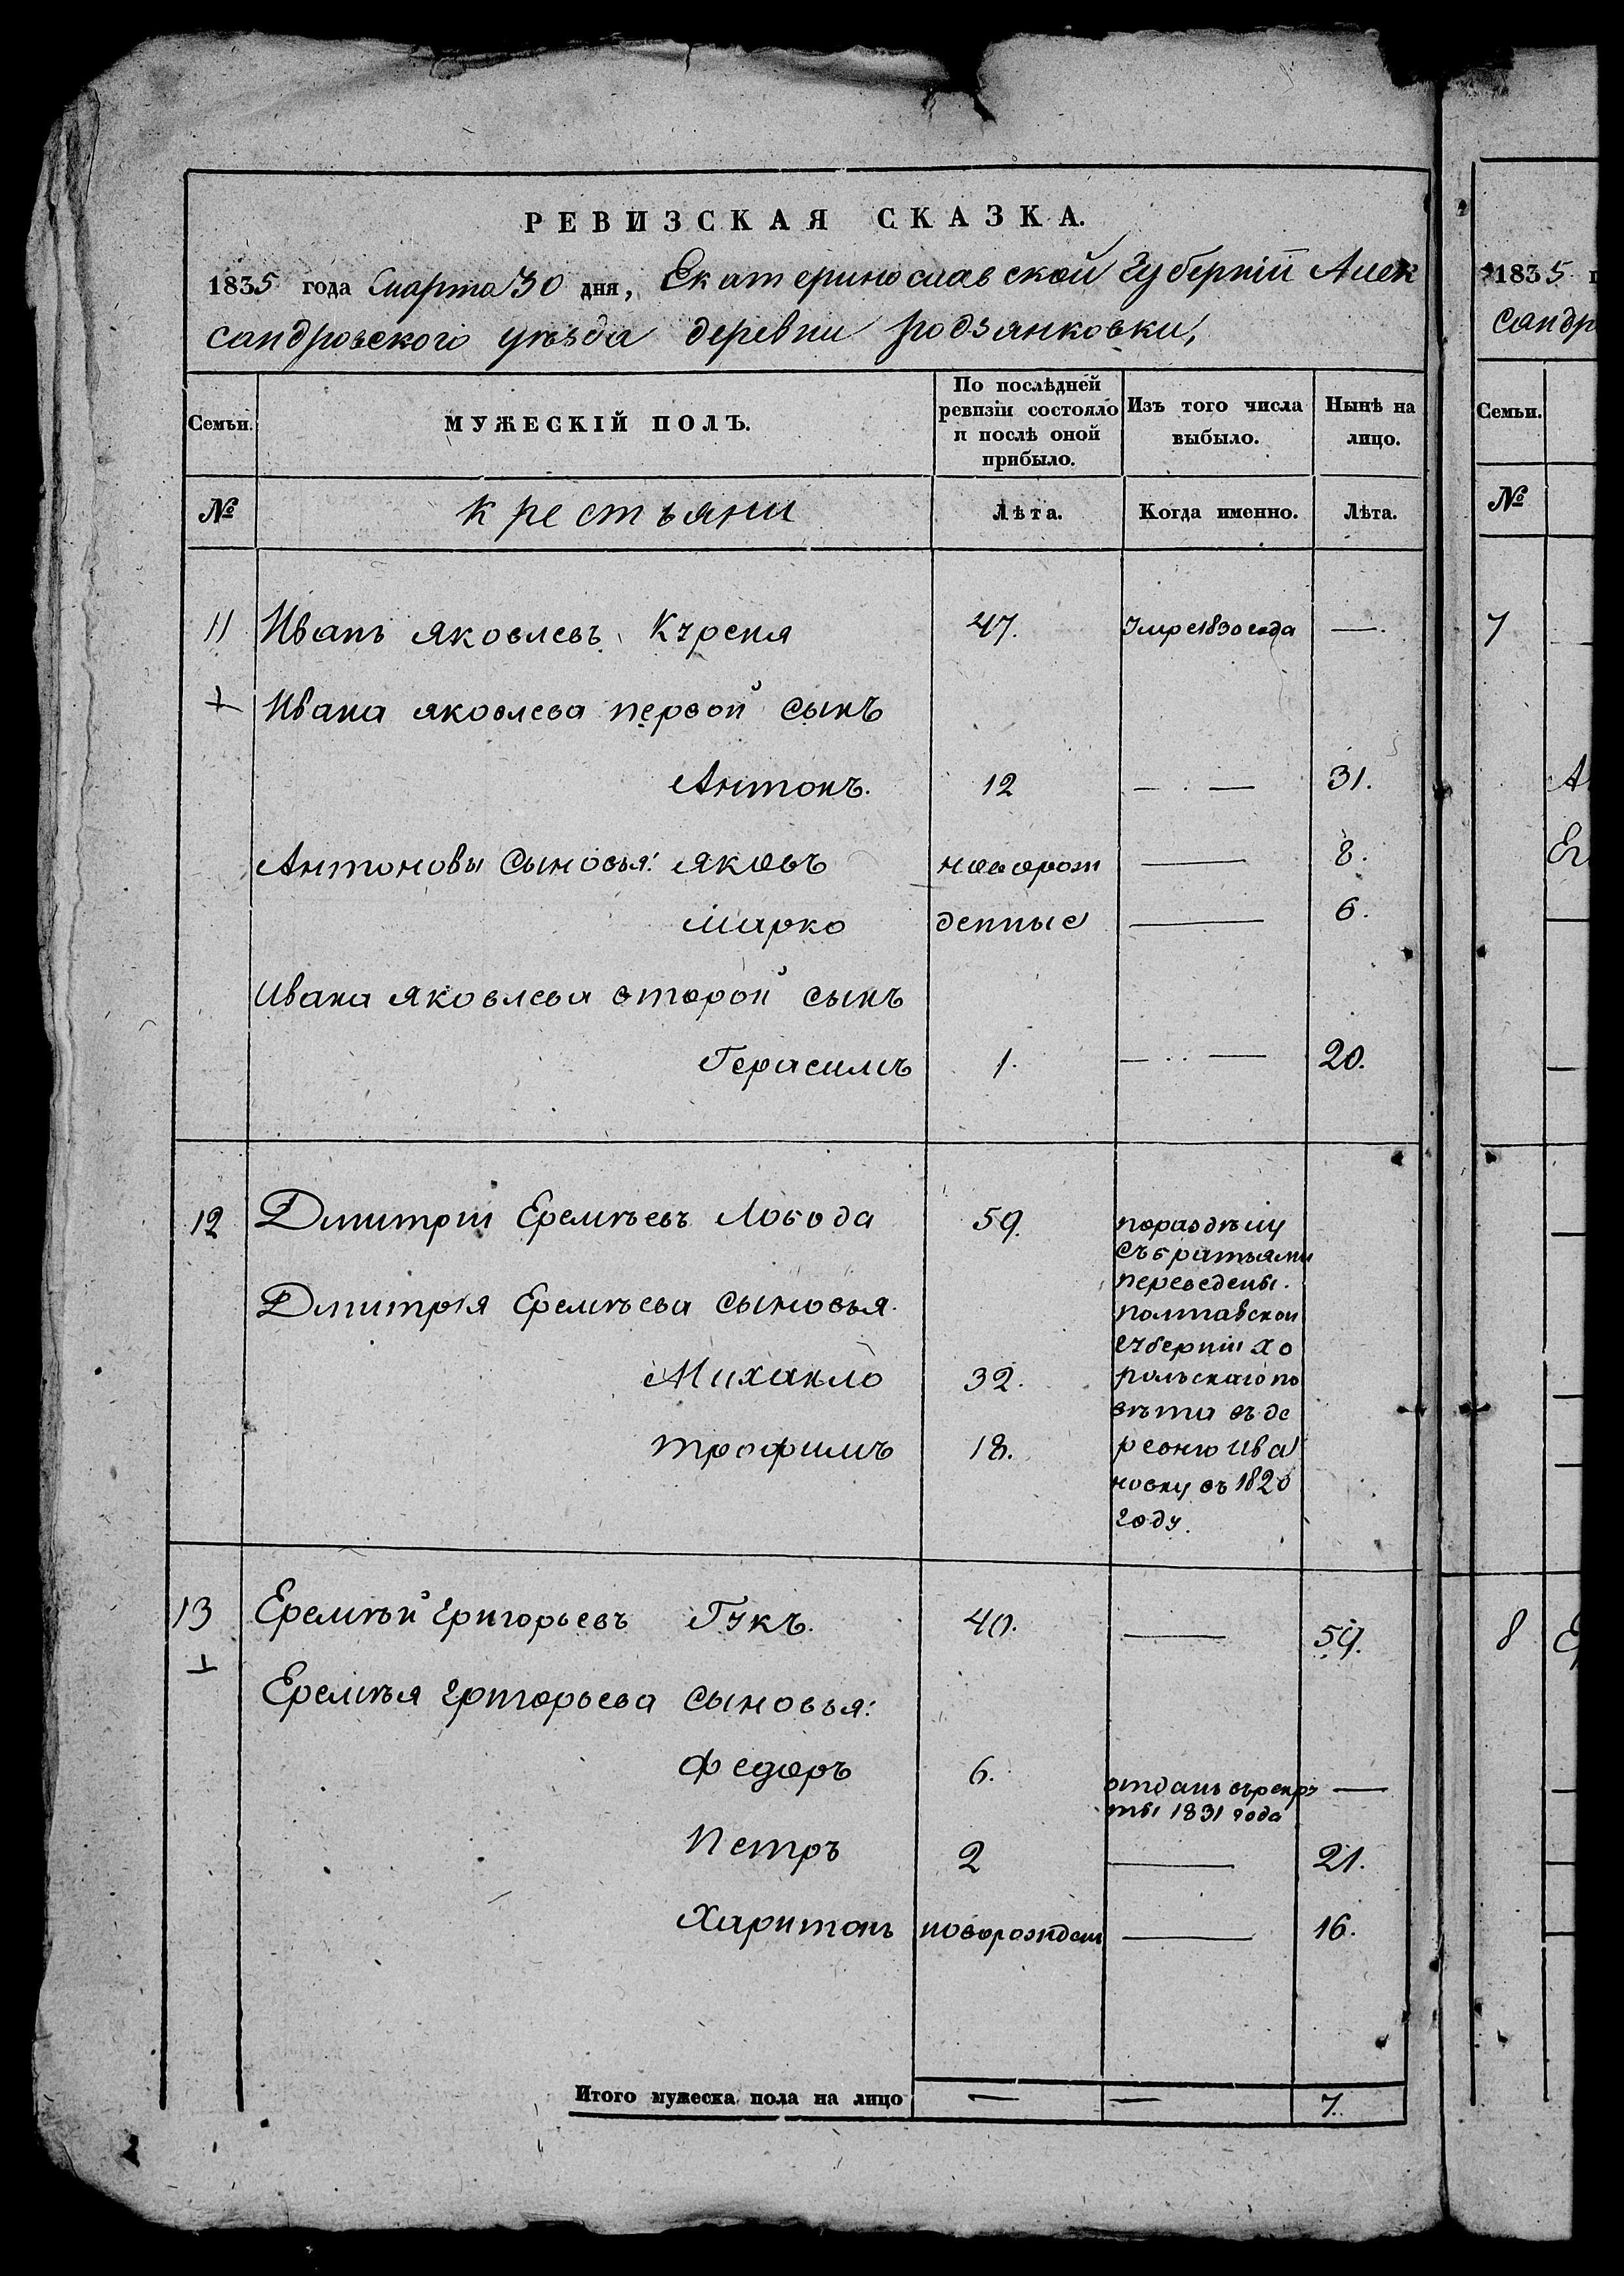 РЕВИЗСКАЯ СКАЗКА.
1835 года марта 30 дня, Екатеринославской губерніи Алек
сандровского уѣзда деревни родзянковки,
Семьи. МУЖЕСКІЙ ПОЛЪ. По послѣдней ревизіи состояло и послѣ оной прибыло. Изъ того числа выбыло. Нынѣ на лицо.
№ крестьяни Лѣта. Когда именно. Лѣта.
11 Иванъ яковлевъ 47. Умре 1830 года —.
Ивана яковлева первой сынъ
Антонъ. 12 — . — 31.
Антоновы сыновья: яковъ новорож — 8.
марко денные — 6.
Ивана яковлева второй сынъ
Герасимъ 1. — .. — 20.
12 Дмитрій Еремѣевъ Лобода 59. поразделу
съ братьями
переведены
Дмитрія Еремѣева сыновья. полтавской
губерніи хо
Михайло 32. рольскаго по
вѣта въ де
трофимъ 18. ревню Ива
новку въ 1820
году.
13 Еремѣй григорьевъ Гукъ. 40. — 59.
Еремѣя григорьева сыновья:
федоръ 6. отданъ врекру —
ты 1831 года
Петръ 2 — 21.
Харитонъ новорожден — 16.
Итого мужеска пола на лицо — — 7.
1835
сандр
Семьи.
№
7
8